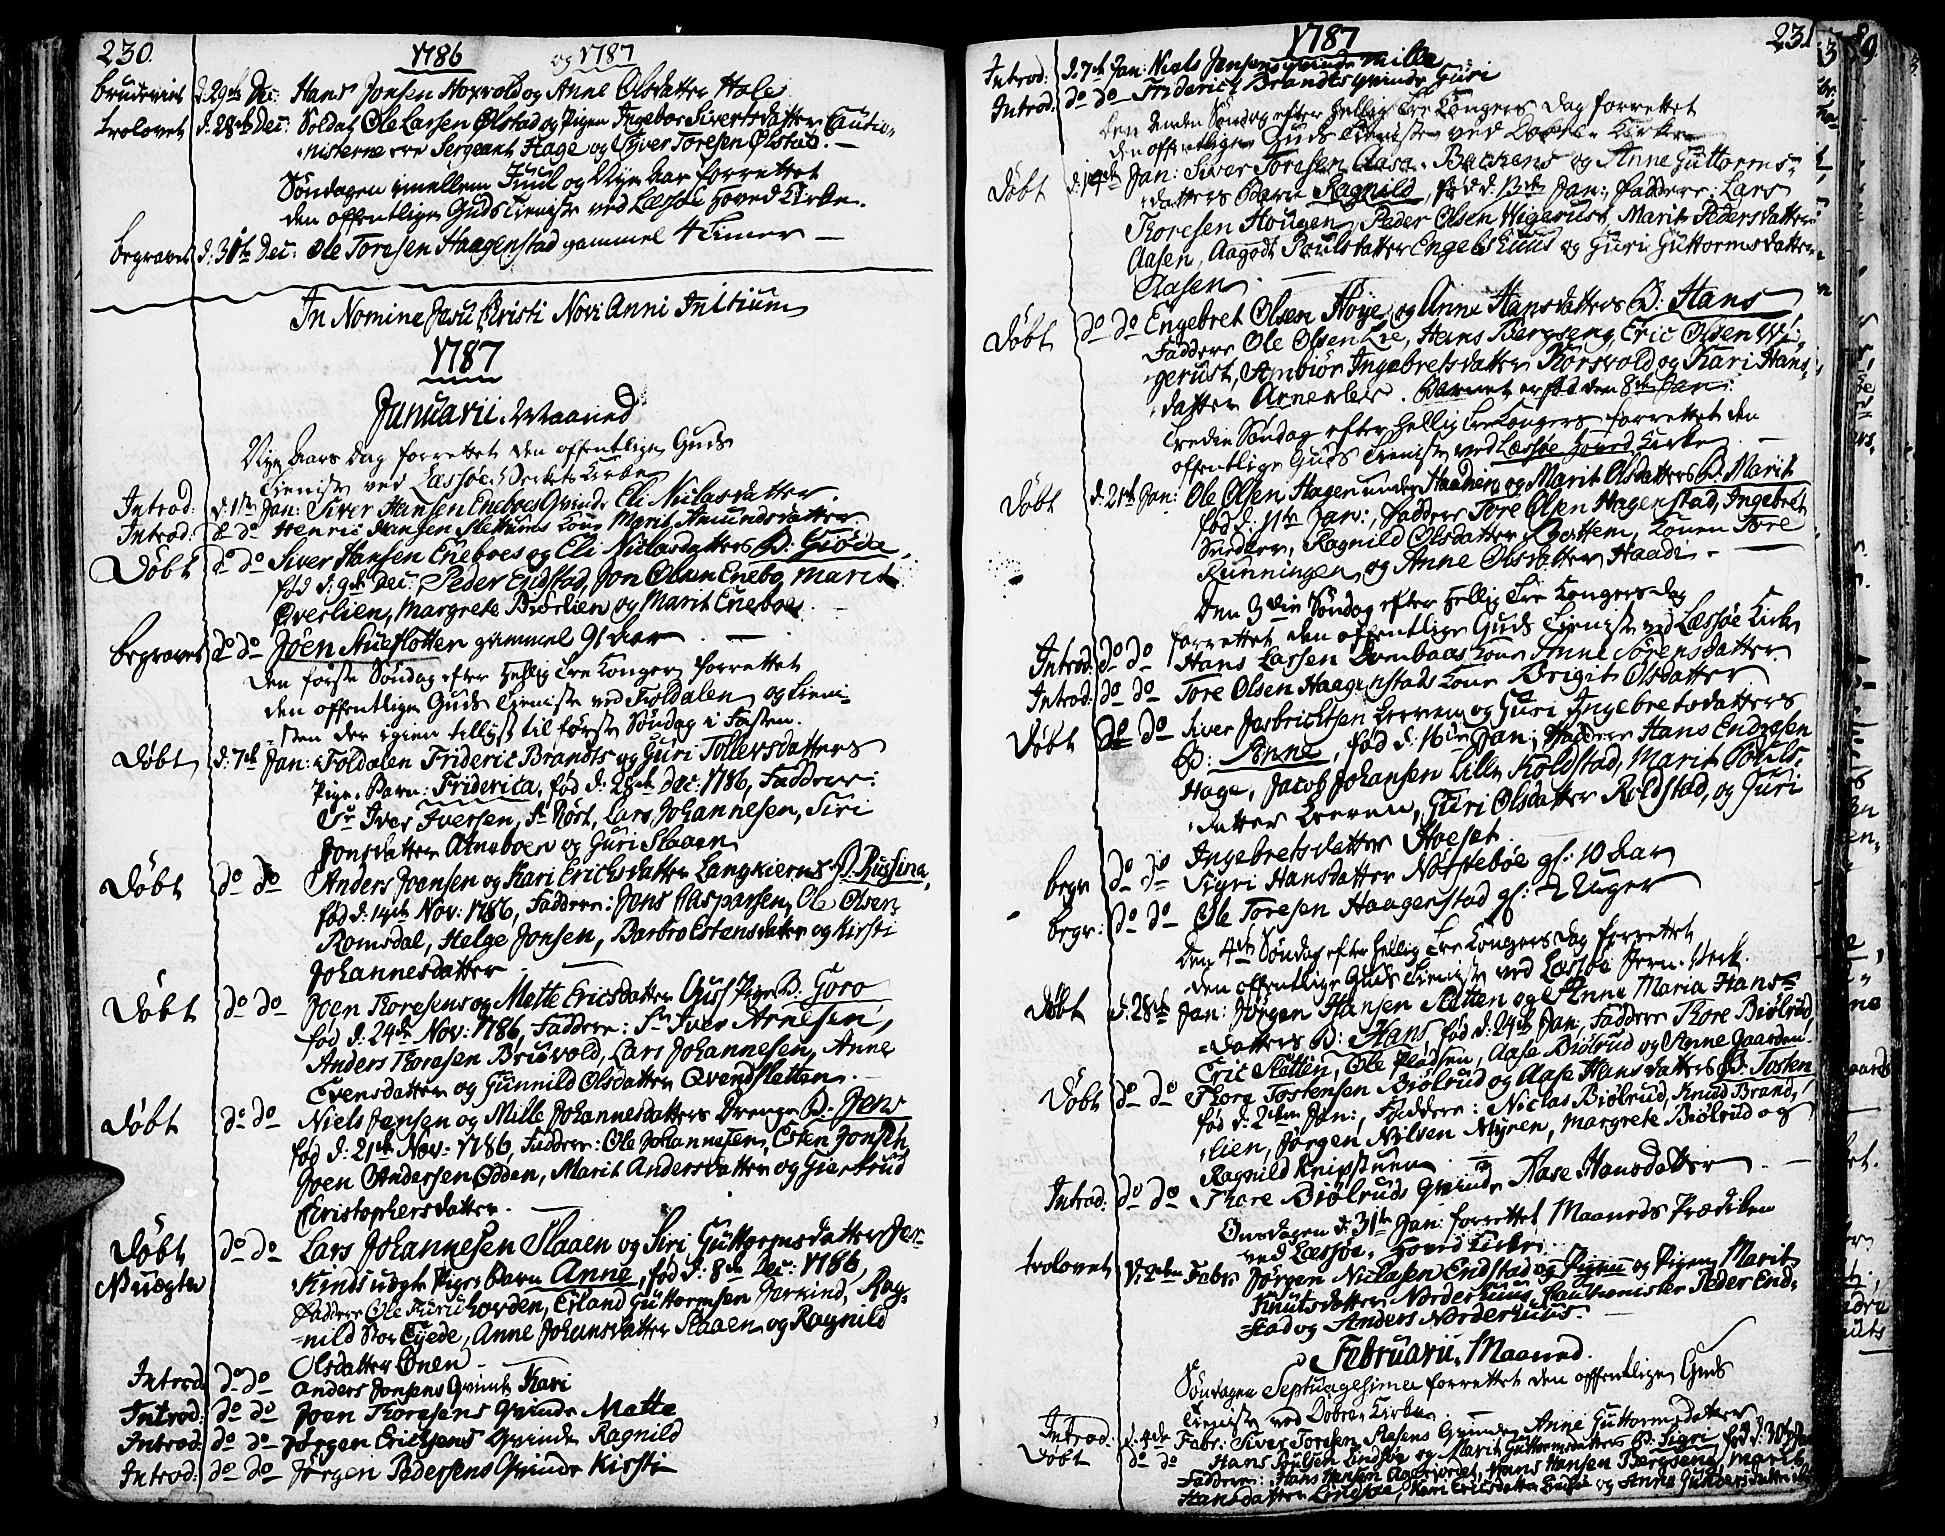 230.
1786 og 1787
Brudeviet d. 29de Dec: Hans Jonsen Horvold og Anne Olsdatter Hole
trolovet d. 28de Dec: Soldat Ole Larsen Ølstad og Pigen Ingebor Sivertsdatter Cautio-
nisterne ere Sergeant Hage og Syver Toresen Ølstad. —
Søndagen imellem Juul og Nye Aar forrettet
den offentlige Guds Tieniste ved Læssøe Hoved Kirke.
begravet d. 31te Dec: Ole Toresen Haagenstad gammel 4 Timer —
In Nomine Jesu Christi Novi Anni Initium
1787
Januarii Maaned
Nye Aars Dag forrettet den offentlige Guds
Tieniste ved Læssøe Verks Kirke
Introd: d. 1te Jan: Siver Hansen Eneboes Qvinde Eli Niclasdatter.
Introd: do do Henric Hansen Slettens Kone Marit Amundsdatter.
Døbt do do Siver Hansen Eneboes og Eli Niclasdatters B: Giøda,
fød d. 9de Dec: Peder Endstad, Jon Olsen Enebo, Marit
Øverlien, Margrete Biørlien og Marit Eneboe. —
begravet do do Joen Stueflotten gammel 91 Aar. —
Den første Søndag efter Hellig Tre Konger forrettet
den offentlige Guds Tieniste ved Foldalen og Tieni-
sten der igien tillyst til første Søndag i Fasten.
Døbt d. 7de Jan: Foldalen Frideric Brandts og Guri Tollevsdatters
Pige-Barn: Friderica, fød d. 28de Dec: 1786, Faddere:
Sr Iver Iversen, Sr Röst, Lars Johannesen, Siri
Jonsdatter Atneboen og Guri Slaaen
Døbt do do Anders Joensen og Kari Erichsdatter Langkierns B. Russina,
fød d. 14de Nov: 1786, Faddere: Jens Caspersen, Ole Olsen
Romsdal, Helge Jonsen, Barbro Estensdatter og Kirsti
Johannesdatter —
Døbt do do Joen Thoresens og Mette Ericsdatter Pige B. Goro
fød d. 24de Nov: 1786, Faddere: Sr Iver Arnesen,
Anders Thoresen Brusvold, Lars Johannesen, Anne
Svensdatter og Gunnild Olsdatter Qvendsletten.
Døbt do do Niels Jensen og Mille Johannesdatters Drenge B. Jens
fød d. 21de Nov: 1786, Faddere: Ole Johannesen, Esten Jonsen
Joen Andersen Odden, Marit Andersdatter og Giertrud
Christophersdatter.
Døbt do do Lars Johannesen Slaaen og Siri Guttormsdatter Jer-
N: uægte kinds uægte Pige-Barn Anne, fød d. 8de Dec: 1786,
Faddere Ole Hovden, Erland Guttormsen Jerkind, Rag-
nild Stor Eyede, Anne Johansdatter Slaaen og Ragnild
Olsdatter Lonen —
Introd. do do Anders Jonsens Qvinde Kari
Introd: do do Joen Thoresens Qvinde Mette
Introd: do do Jørgen Ericsens Qvinde Ragnild
Introd: do do Jørgen Pedersens Qvinde Kirsti
1787 231
Introd: d. 7de Jan: Niels Jensens Qvinde Mille
Introd: do do Friderich Brandts Qvinde Guri
Den Anden Søndag efter Hellig Tre Kongers Dag forrettet
den offentlige Guds Tieniste ved Dovre Kirke
Døbt d. 14de Jan: Siver Toresen Aasa-Backens og Anne Guttorms-
datters Barn Ragnild, fød d. 13de Jan:, Faddere: Lars
Thoresen Hougen, Peder Olsen Wigerust, Marit Pedersdatter
Aasen, Aagodt Poulsdatter Engelshuus og Guri Guttormsdatter
Aasen
Døbt do do Engebret Olsen Høye og Anne Hansdatters B: Hans
Faddere Ole Olsen Lie, Hans Bergseng, Eric Olsen Wi-
gerust, Ambiør Ingebretsdatter Korsvold og Kari Hans-
datter Arnevlie. Barnet er fød den 8de Jan:
Tredie Søndag efter Hellig Tre Konger forrettet den
offentlige Guds Tieniste ved Læssøe Hoved Kirke —
Døbt d. 21de Jan: Ole Olsen Hagen under Haahiem og Marit Olsdatters B. Marit
fød d. 11te Jan:, Faddere Tore Olsen Hagenstad, Ingebret
Sneder, Ragnild Olsdatter Bottem, Konen Tore
Runningen og Anne Olsdatter Haade —
Den 3die Søndag efter Hellig Tre Kongers Dag
forrettet den offentlige Guds Tieniste ved Læssøe Kirke
Introd: do do Hans Larsen Dombaas Kone Anne Sørensdatter.
Introd: do do Tore Olsen Haagenstads Kone Brigit Olsdatter
Døbt do do Siver Jesbrichtsen Leeren og Guri Ingebretsdatters
B: Anne, fød d. 16de Jan:, Faddere Hans Endresen
Hage, Jacob Johansen Lille Koldstad, Marit Pouls-
datter Leeren, Guri Olsdatter Roldstad, og Guri
Ingebretsdatter Hoeset
begr do do Sigri Hansdatter Nørstebøe gl: 10 Aar
begr: do do Ole Toresen Haagenstad gl: 2 Uger
Den 4de Søndag efter Hellig Tre Kongers Dag forrettet
den offentlige Guds Tieniste ved Læssøe Jern-Verk
Døbt d. 28de Jan: Jørgen Hansen Sletten og Anne Maria Hans-
datters B: Hans, fød d. 24de Jan, Faddere Thore Biølrud,
Eric Sletten, Ole Pedsen, Aase Biølrud og Anne Gaarden
Døbt do do Thore Tostensen Biølrud og Aase Hansdatters B: Tosten
fød d. 2den Jan:, Faddere: Niclas Biølrud, Knud Brand-
lien, Jørgen Nilsen Myren, Margrete Biølrud og
Ragnild Knipstuen
Introd: do do Thore Biølruds Qvinde Aase Hansdatter —
Onsdagen d. 31te Jan: forrettet Maaneds Prædiken
ved Læssøe Hoved Kirke.
trolovet d. 2den Febr. Jørgen Niclasen Endstad og Pigen Marit
Knutsdatter Norderhuus, Cautionister Peder End-
stad og Anders Norderhuus.
Februarii Maaned.
Søndagen Septuagesima forrettet den offentlige Guds
Tieniste ved Dovre Kirke —
Introd: d. 4de Febr: Siver Toresen Aasens Qvinde Anne Guttormsdatter
Døbt do do Hans Poulsen Lindsøe og Marit Guttormsdatters B: Sigri, fød d. 30te Jan
Faddere: Hans Hansen, Hans Hansen Bergseng, Marit
Hansdatter Lindsøe, Kari Ericsdatter og Anne Gundersdatter